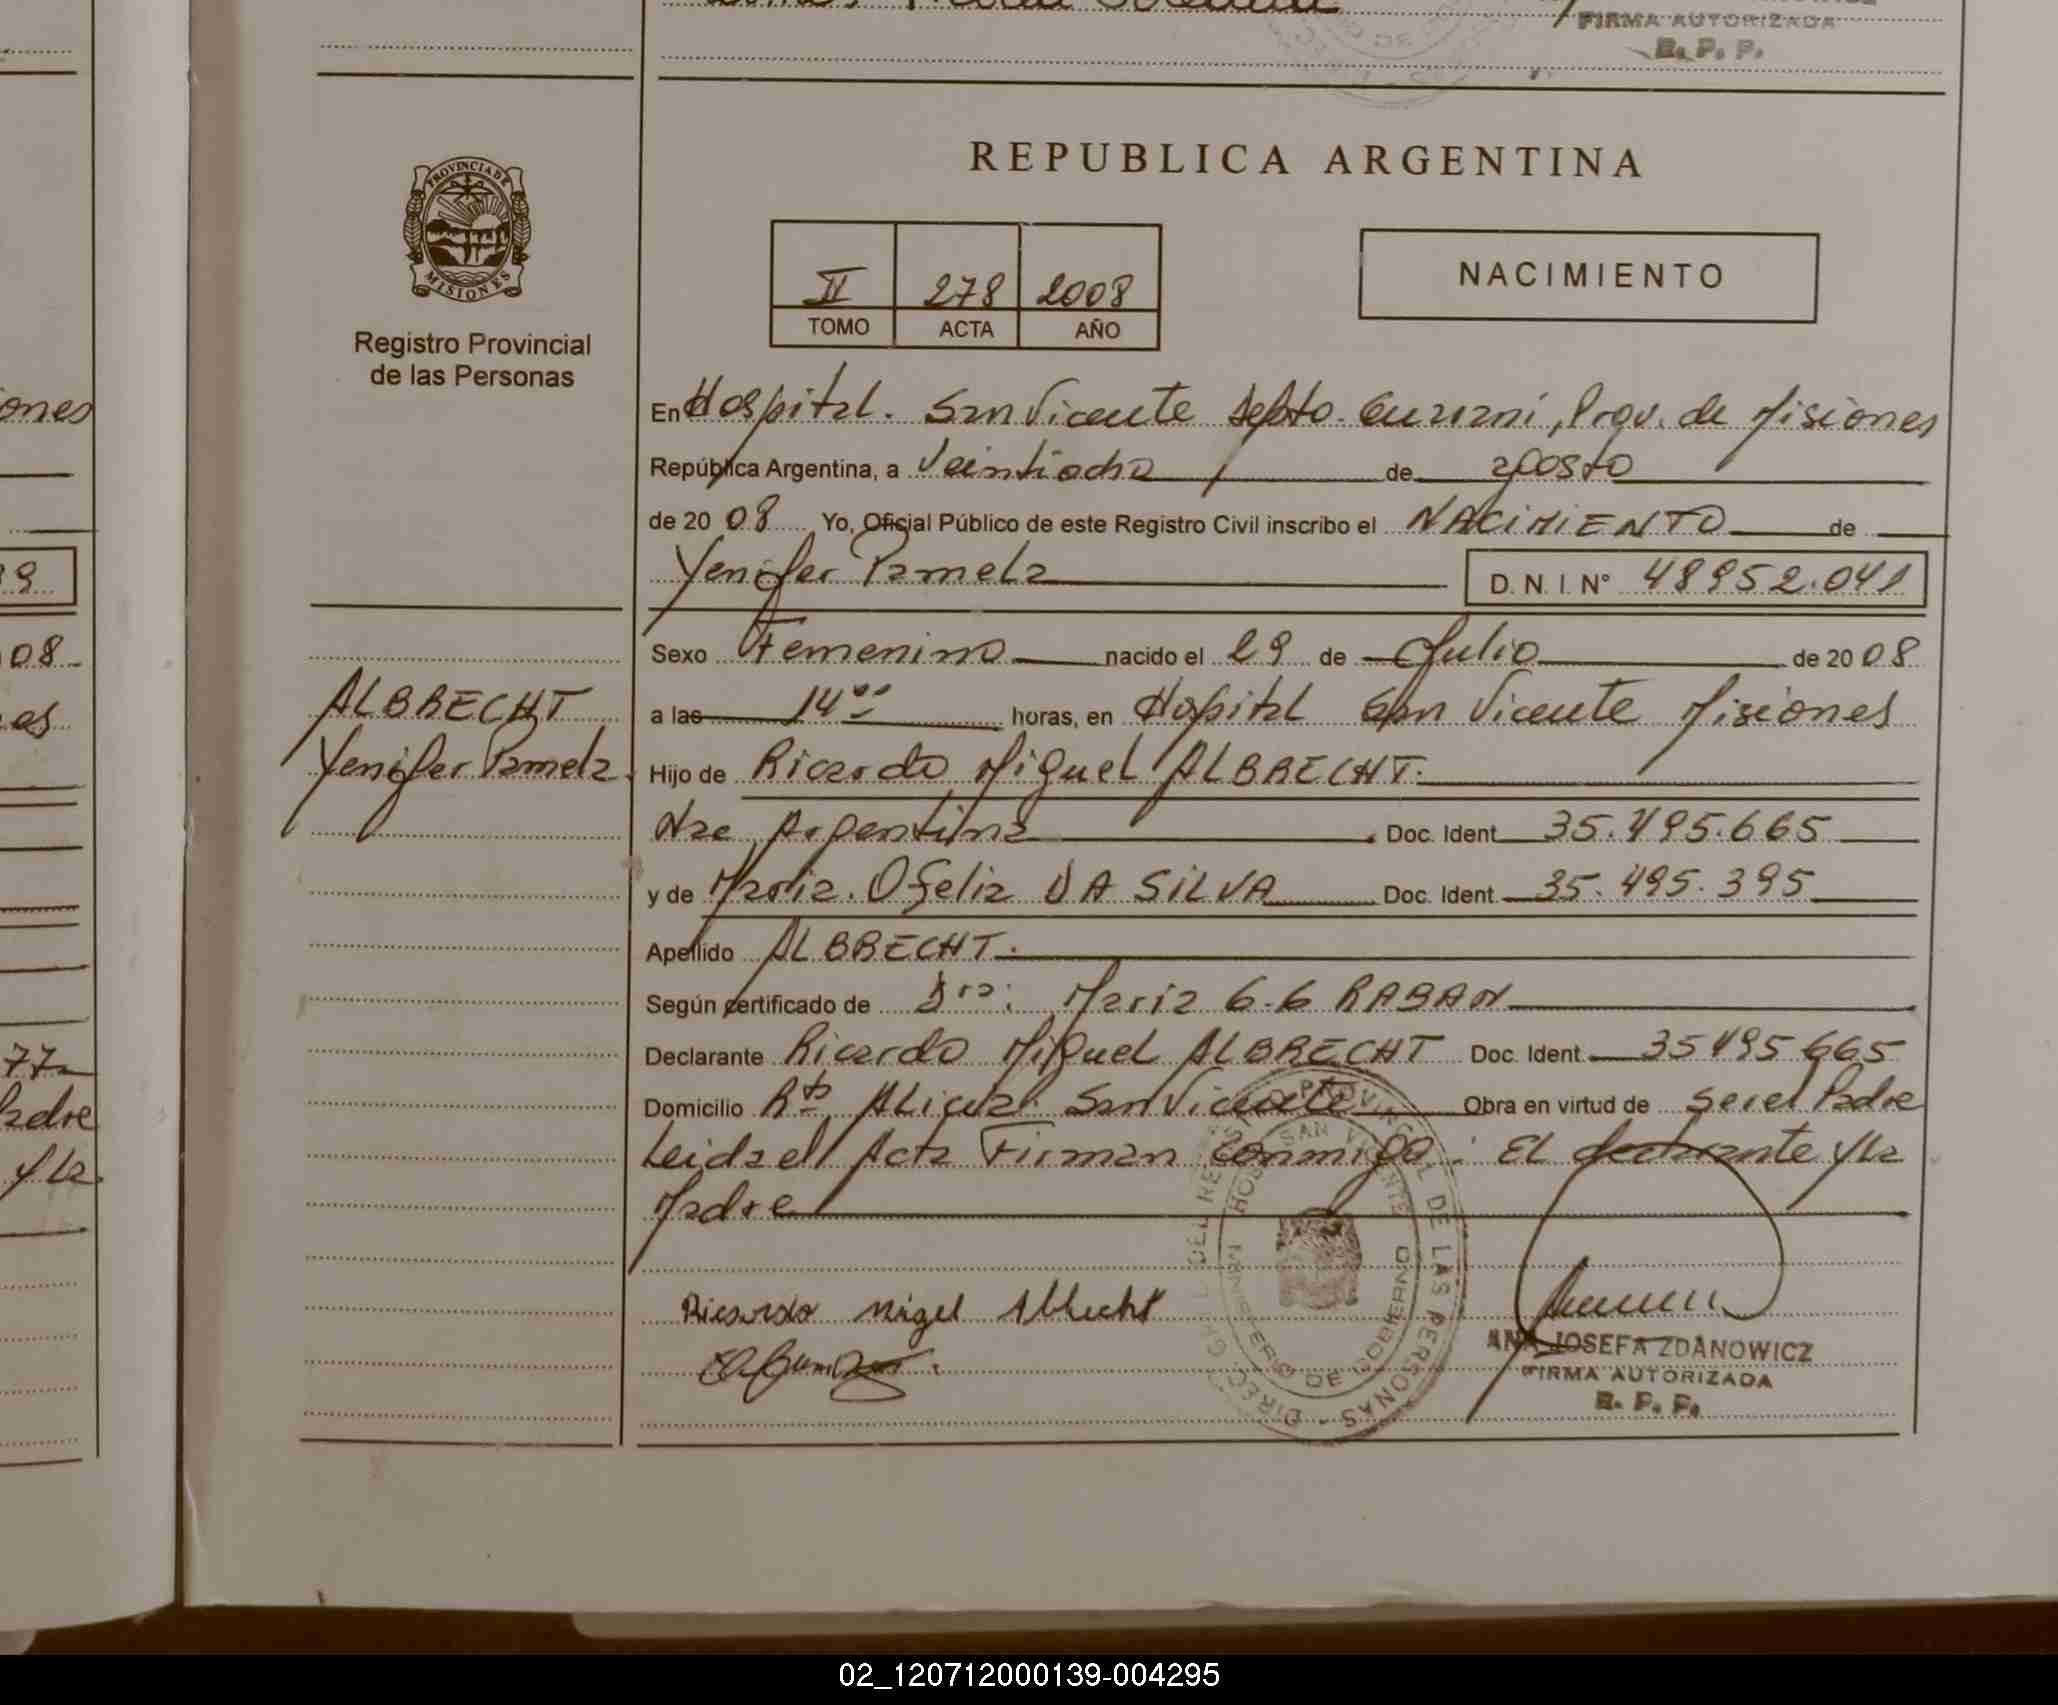 FIRMA AUTORIZADA
R. P. P.
REPUBLICA ARGENTINA
PROVINCIA DE
MISIONES
Registro Provincial
de las Personas
II 278 2008
TOMO ACTA AÑO
NACIMIENTO
En Hospital. San Vicente Depto. Guarani, Prov. de Misiones
República Argentina, a Veintiocho de agosto
de 20 08 Yo, Oficial Público de este Registro Civil inscribo el NACIMIENTO de
Yenifer Pamela D. N. I. Nº 48952.041
Sexo Femenino nacido el 29 de Julio de 20 08
a las 14⁰⁰ horas, en Hospital San Vicente Misiones
Hijo de Ricardo Miguel ALBRECHT.
Nac Argentina Doc. Ident. 35.495.665
y de Maria. Ofelia DA SILVA Doc. Ident. 35.495.395
Apellido ALBRECHT.
Según certificado de Dra: Maria G. G RABAN
Declarante Ricardo Miguel ALBRECHT Doc. Ident. 35495665
Domicilio Alicia San Vicente Obra en virtud de ser el Padre
Leida el Acta Firman conmigo: El declarante y la
Madre
ALBRECHT
Yenifer Pamela
Ricardo Migel Albrecht
ANA JOSEFA ZDANOWICZ
FIRMA AUTORIZADA
R. P. P.
DIRECCION GRAL DEL REGISTRO PROVINCIAL DE LAS PERSONAS
HOSP SAN VICENTE
MINISTERIO DE GOBIERNO
ones
9
08
es
77
Padre
y la
02_120712000139-004295